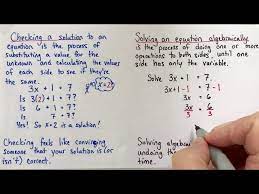 Checking a solution to an
equation is the process of
substituting a value for the
unknown and calculating the
values of each side to see if they're
the same.
Is 3x + 1 = 7? x=2
Is 3(2) + 1 = 7?
Is 6 + 1 = 7?
Is 7 = 7?
Yes! So x=2 is a solution
Checking feels like convincing
someone that your solution is (or
isn't) correct.
Solving an equation algebraically
is the process of doing one or more
operations to both sides, until one
side has only the variable.
Solve 3x + 1 = 7.
3x+1-1 = 7-1
3x = 6
3x = 6
3 3
Solving algebra
undoing the
time.